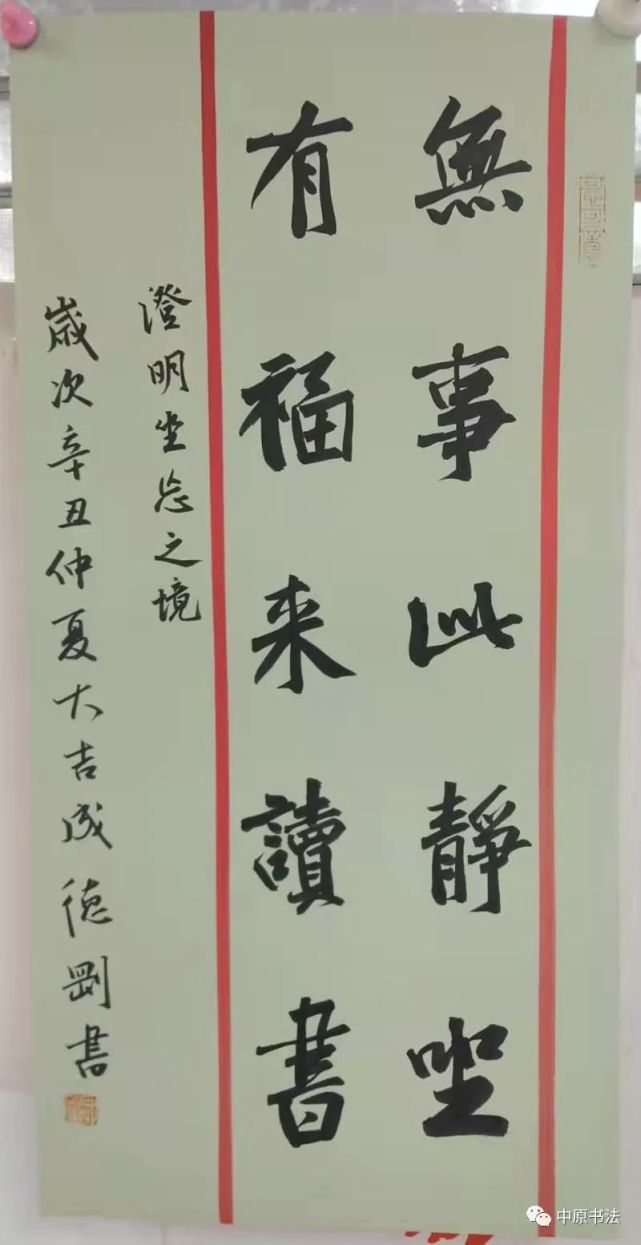 無事此靜坐
有福来讀書
澄明坐忘之境
歲次辛丑仲夏大吉成德剛書
中原书法